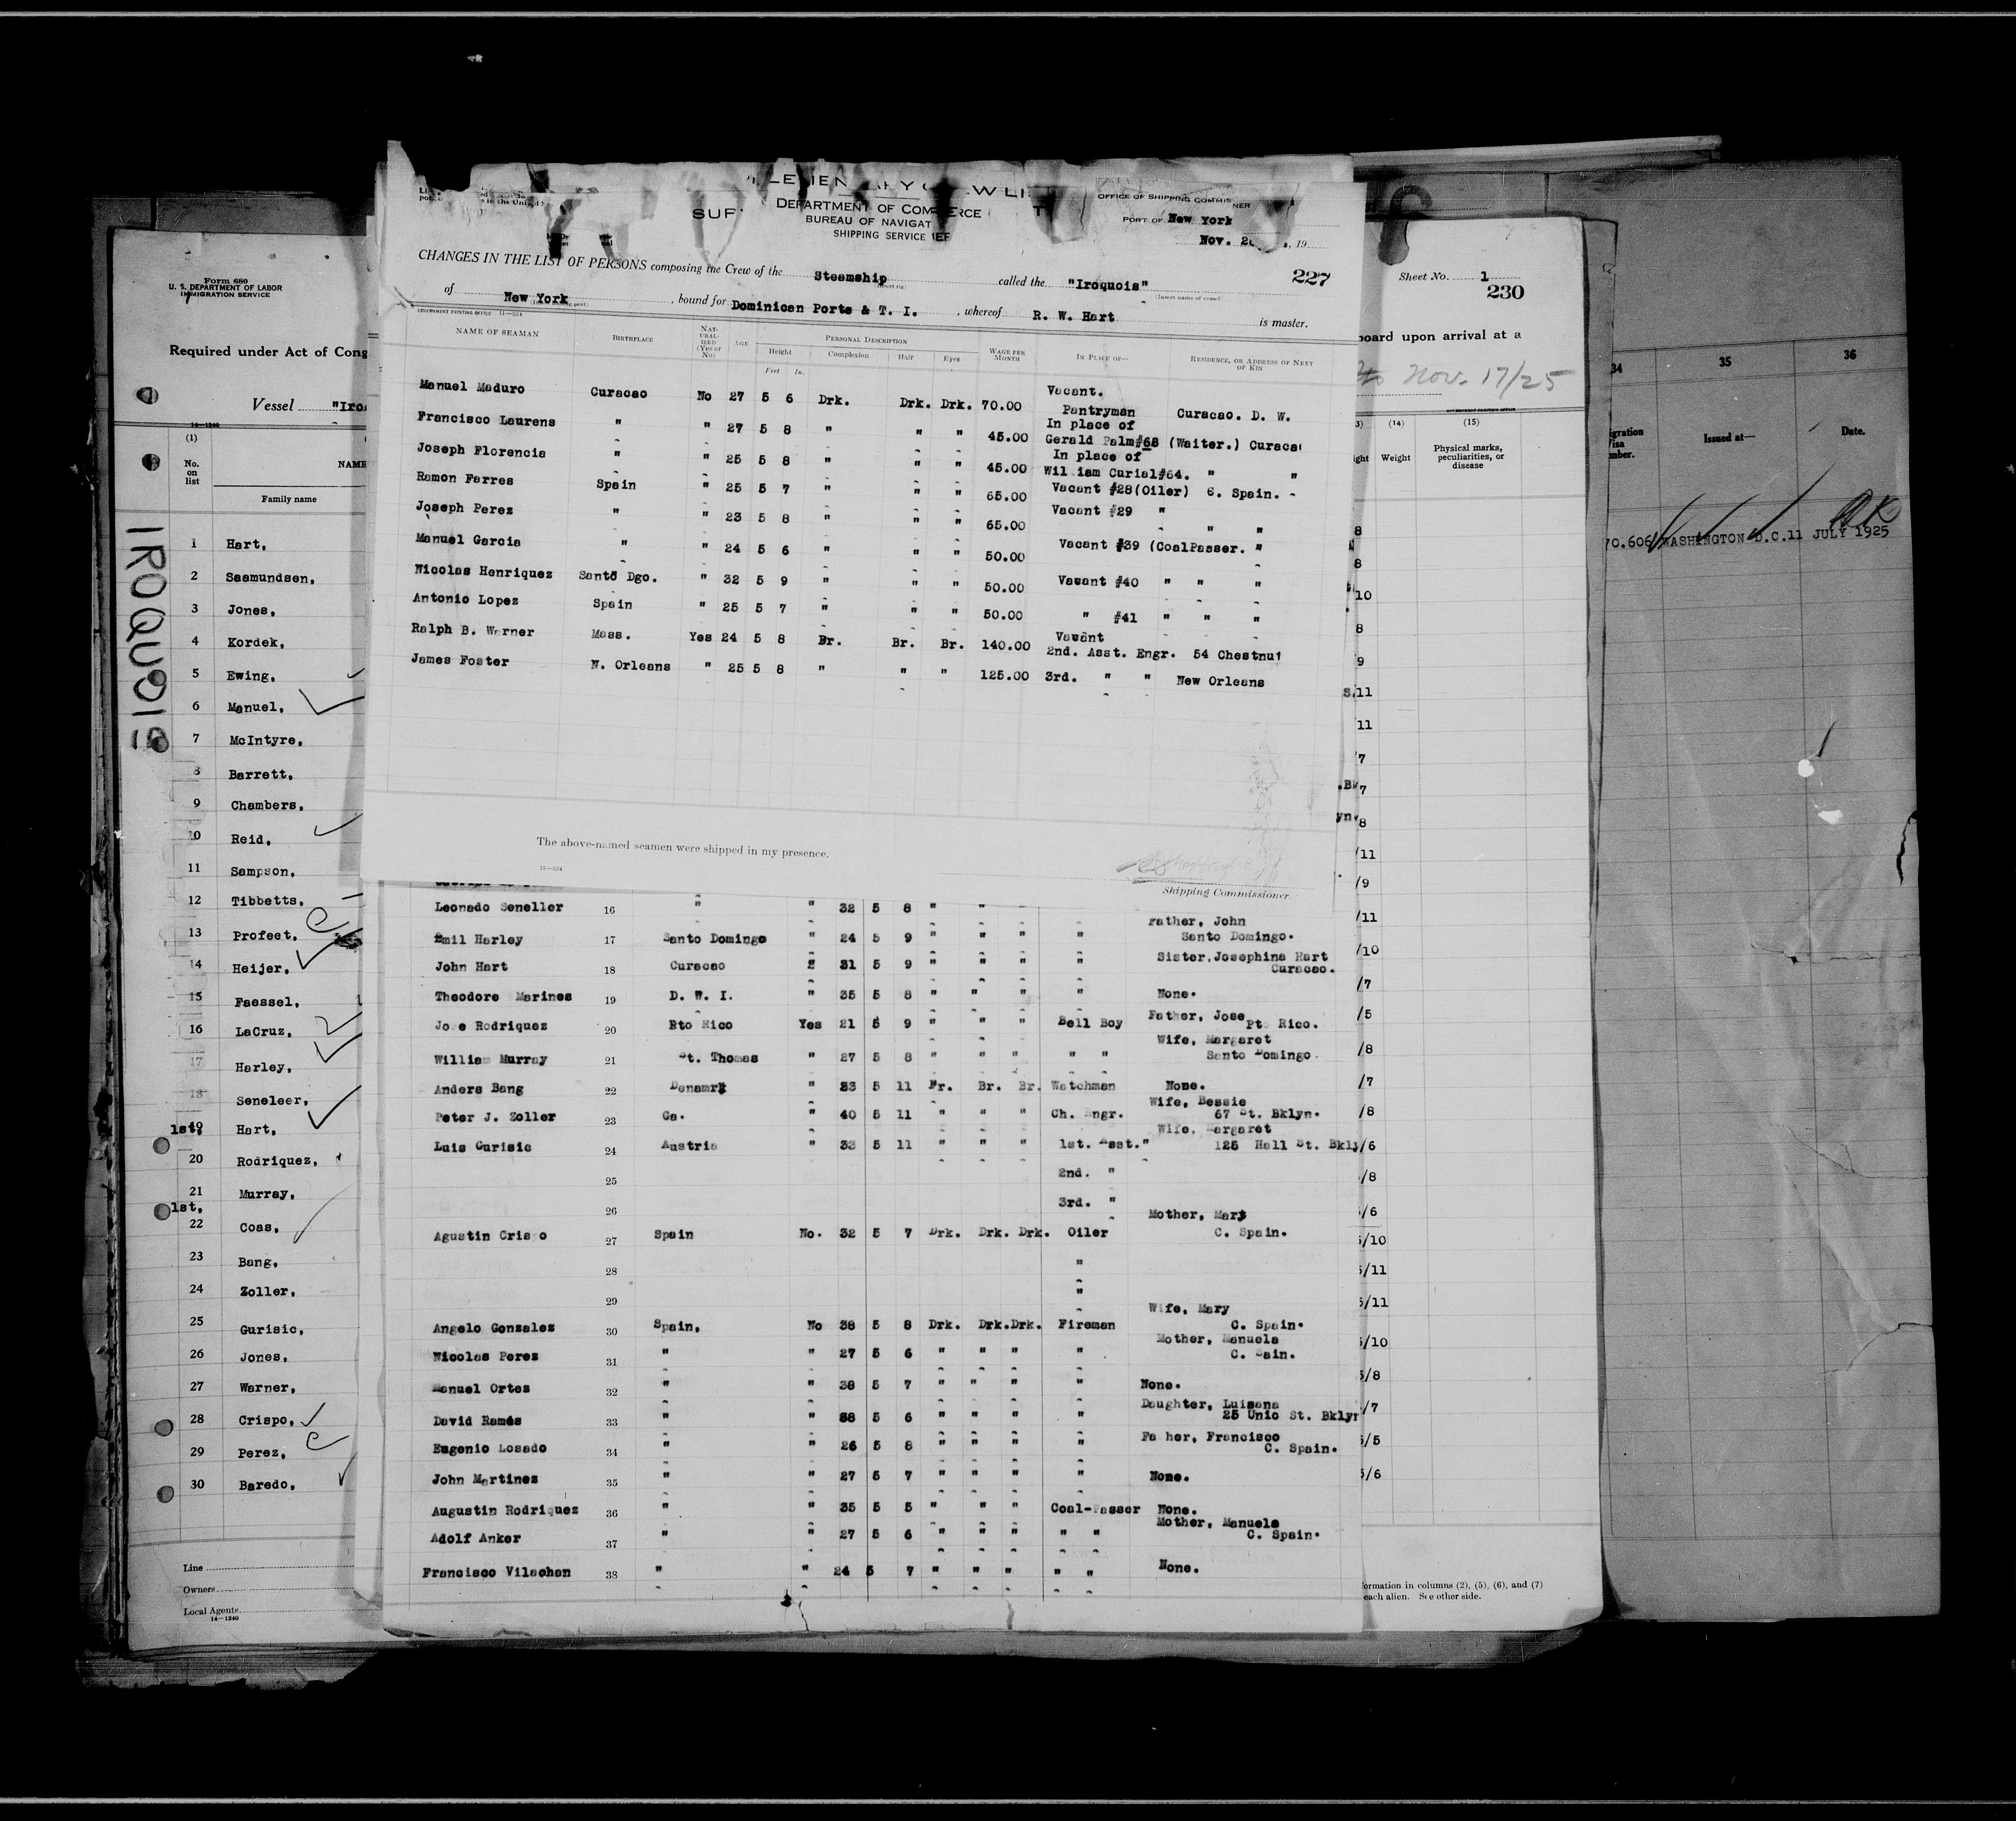 DEPARTMENT OF COMMERCE
BUREAU OF NAVIGAT
SHIPPING SERVICE
OFFICE OF SHIPPING COMMISSIONER
PORT OF New York
Nov. , 19
CHANGES IN THE LIST OF PERSONS composing the Crew of the Steamship called the "Iroquois" 227
(Insert name of vessel)
of New York , bound for Dominican Ports & T. I. , whereof R. W. Hart is master.
GOVERNMENT PRINTING OFFICE 11—524
NAME OF SEAMAN BIRTHPLACE NATURALIZED (Yes or No) AGE PERSONAL DESCRIPTION WAGE PER MONTH IN PLACE OF— RESIDENCE, OR ADDRESS OF NEXT OF KIN
Height Complexion Hair Eyes
Feet In.
Manuel Maduro Curacao No 27 5 6 Drk. Drk. Drk. 70.00 Vacant. Pantryman Curacao. D. W.
Francisco Laurens " " 27 5 8 " " " 45.00 In place of Gerald Palm#68 (Waiter.) Curaca
Joseph Florencia " " 25 5 8 " " " 45.00 In place of William Curial#64. " "
Ramon Farres Spain " 25 5 7 " " " 65.00 Vacant #28(Oiler) C. Spain.
Joseph Perez " " 23 5 8 " " " 65.00 Vacant #29 " " "
Manuel Garcia " " 24 5 6 " " " 50.00 Vacant #39 (CoalPasser. "
Nicolas Henriquez Santo Dgo. " 32 5 9 " " " 50.00 Vacant #40 " " "
Antonio Lopez Spain " 25 5 7 " " " 50.00 " #41 " " "
Ralph B. Warner Mass. Yes 24 5 8 Br. Br. Br. 140.00 Vacant 2nd. Asst. Engr. 54 Chestnut
James Foster N. Orleans " 25 5 8 " " " 125.00 3rd. " " New Orleans
The above-named seamen were shipped in my presence.
11—524
Shipping Commissioner.
Leonado Seneller 16 " " 32 5 8 " "
Emil Harley 17 Santo Domingo " 24 5 9 " " " " Father, John Santo Domingo.
John Hart 18 Curacao " 31 5 9 " " " " Sister, Josephina Hart Curacao.
Theodore Marines 19 D. W. I. " 35 5 8 " " " " None.
Jose Rodriquez 20 Pto Rico Yes 21 5 9 " " " Bell Boy Father, Jose Pto Rico.
William Murray 21 St. Thomas " 27 5 8 " " " " " Wife, Margaret Santo Domingo.
Anders Bang 22 Denamrk " 33 5 11 Br. Br. Br. Watchman None.
Peter J. Zoller 23 Ga. " 40 5 11 " " " Ch. Engr. Wife, Bessie 67 St. Bklyn.
Luis Gurisic 24 Austria " 33 5 11 " " " 1st. Asst." Wife, Margaret 125 Hall St. Bkly
25 2nd. "
26 3rd. "
Agustin Crispo 27 Spain No. 32 5 7 Drk. Drk. Drk. Oiler Mother, Mary C. Spain.
28 "
29 "
Angelo Gonzalez 30 Spain, No 38 5 8 Drk. Drk.Drk. Fireman Wife, Mary C. Spain.
Nicolas Perez 31 " " 27 5 6 " " " " Mother, Manuela C. Sain.
Manuel Ortez 32 " " 38 5 7 " " " " None.
David Rames 33 " " 38 5 6 " " " " Daughter, Luisana 25 Unio St. Bklyn
Eugenio Losado 34 " " 26 5 8 " " " " Father, Francisco C. Spain.
John Martinez 35 " " 27 5 7 " " " " None.
Augustin Rodriquez 36 " " 35 5 5 " " " Coal-Passer None.
Adolf Anker 37 " " 27 5 6 " " " " " Mother, Manuela C. Spain.
Francisco Vilachan 38 " " 24 5 7 " " " " " None.
Form 680
U. S. DEPARTMENT OF LABOR
IMMIGRATION SERVICE
Required under Act of Cong
Vessel "Iro
14—1240
(1)
No. on list NAME
Family name
IROQUOIS
1 Hart,
2 Saamundsen,
3 Jones,
4 Kordek,
5 Ewing,
6 Manuel,
7 McIntyre,
8 Barrett,
9 Chambers,
10 Reid,
11 Sampson,
12 Tibbetts,
13 Profeet,
14 Heijer,
15 Faessel,
16 LaCruz,
17 Harley,
18 Seneleer,
1st.
19 Hart,
20 Rodriquez,
21 Murray,
1st.
22 Coas,
23 Bang,
24 Zoller,
25 Gurisic,
26 Jones,
27 Warner,
28 Crispo,
29 Perez,
30 Baredo,
Line
Owners
Local Agents
14—1240
Sheet No. 1
230
board upon arrival at a
to Nov. 17/25
(14) (15)
Weight Physical marks, peculiarities, or disease
8
8
10
8
9
11
/11
/7
7
8
/11
/9
/11
/10
/7
/5
/8
/7
/8
/6
/8
/6
/10
/11
5/11
5/10
5/8
/7
5/5
5/6
ormation in columns (2), (5), (6), and (7)
each alien. See other side.
34 35 36
Issued at— Date.
70.606 WASHINGTON D.C.11 JULY 1925
OK